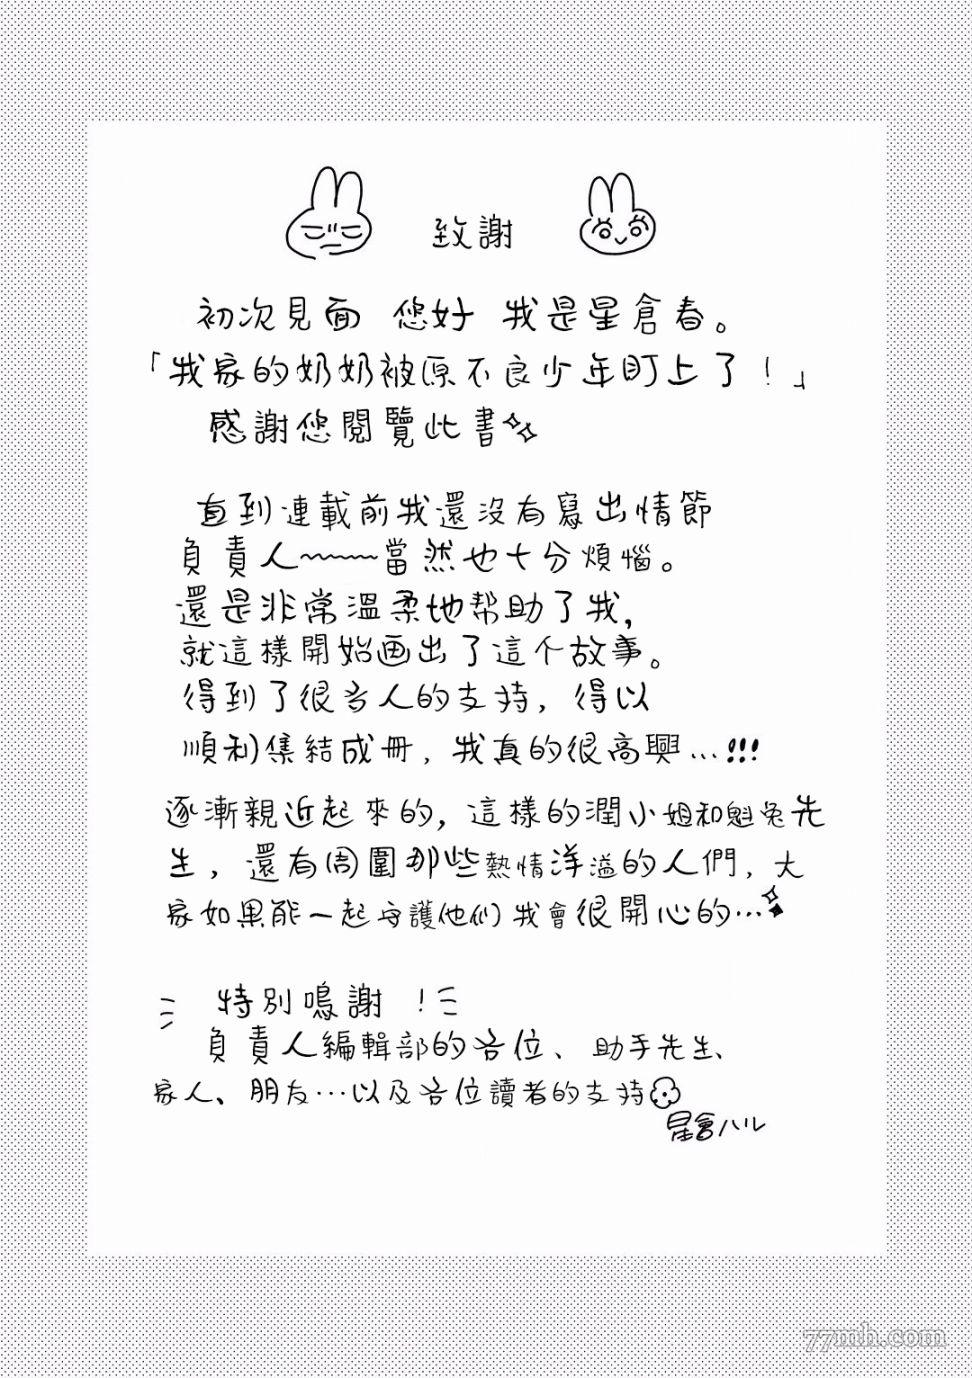 致謝
初次見面 您好 我是星倉春。
「我家的奶奶被原不良少年盯上了！」
感謝您閱覽此書
直到連載前我還沒有寫出情節
負責人~~~~當然也十分煩惱。
還是非常溫柔地帮助了我，
就這樣開始画出了這个故事。
得到了很多人的支持，得以
順利集結成冊，我真的很高興…!!!
逐漸親近起來的，這樣的潤小姐和魁兔先
生，還有周圍那些熱情洋溢的人們，大
家如果能一起守護他们 我會很開心的…
特別鳴謝！
負責人編輯部的各位、助手先生、
家人、朋友…以及各位讀者的支持
星倉ハル
77mh.com